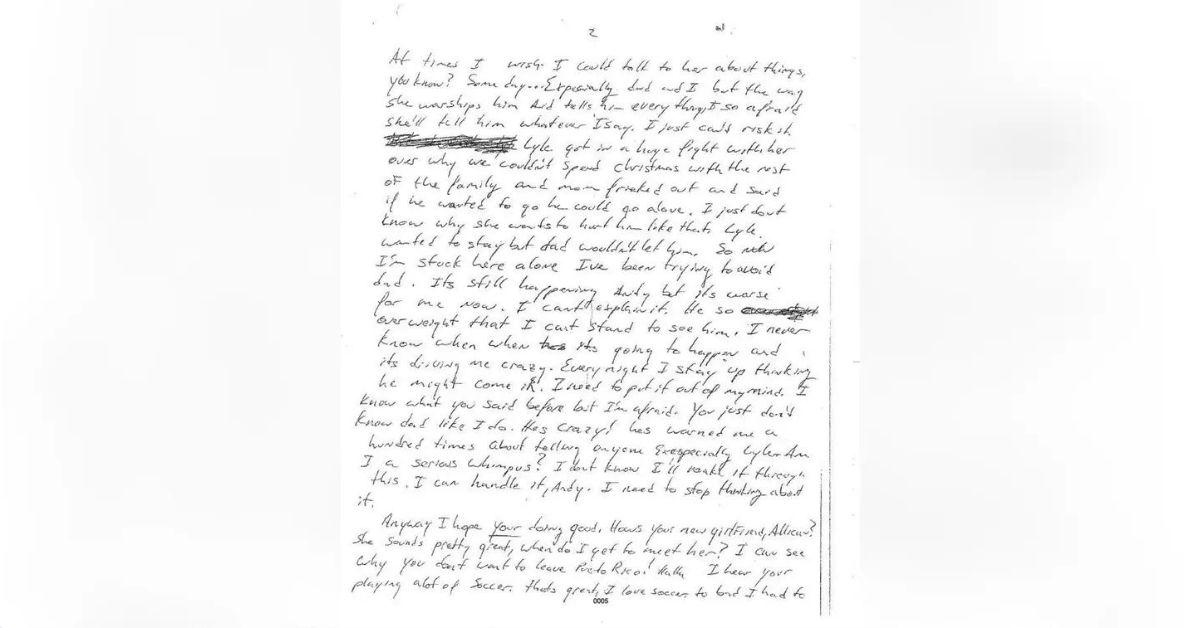 2
At times I wish I could talk to her about things,
you know? Some day... Expecially dad and I but the way
she worships him and tells him everything, I so afraid
she'll tell him whatever I say. I just can't risk it
Lyle got in a huge fight with her
over why we couldn't spend Christmas with the rest
of the family and mom freaked out and said
if he wanted to go he could go alone. I just dont
know why she wants to hurt him like that. Lyle
wanted to stay but dad wouldn't let him. So now
I'm stuck here alone I've been trying to avoid
dad. Its still happening Andy but its worse
for me now. I can't explain it. He so
overweight that I cant stand to see him. I never
know when when its going to happen and
its driving me crazy. Every night I stay up thinking
he might come in. I need to put it out of my mind. I
know what you said before but I'm afraid. You just don't
know dad like I do. Hes crazy! hes warned me a
hundred times about telling anyone Exespecially Lyle. Am
I a serious Whimpus? I dont know I'll make it through
this. I can handle it, Andy. I need to stop thinking about
it.
Anyway I hope your doing good. Hows your new girlfriend, Allison?
She sounds pretty great, when do I get to meet her? I can see
why you dont want to leave Puerto Rico! HaHa I hear your
playing alot of Soccer. thats great, I love soccer to but I had to
0005